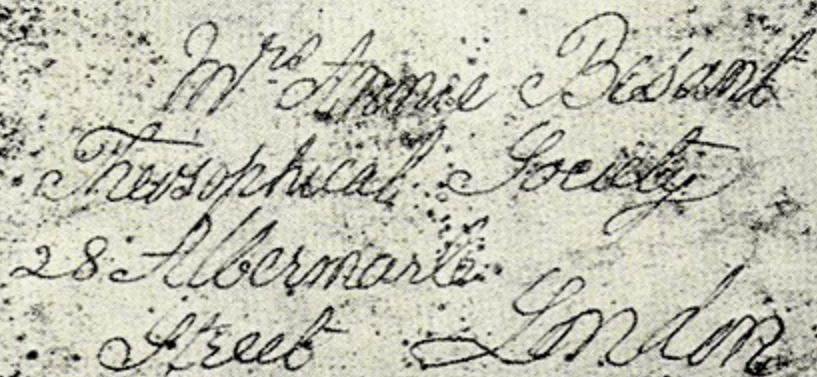 Mrs Annie Besant
Theosophical Society
28 Albermarle
Street London